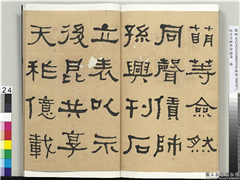 萌等僉然
同聲賃師
孫興刊石
立表以示
後昆共享
天祚億載
24